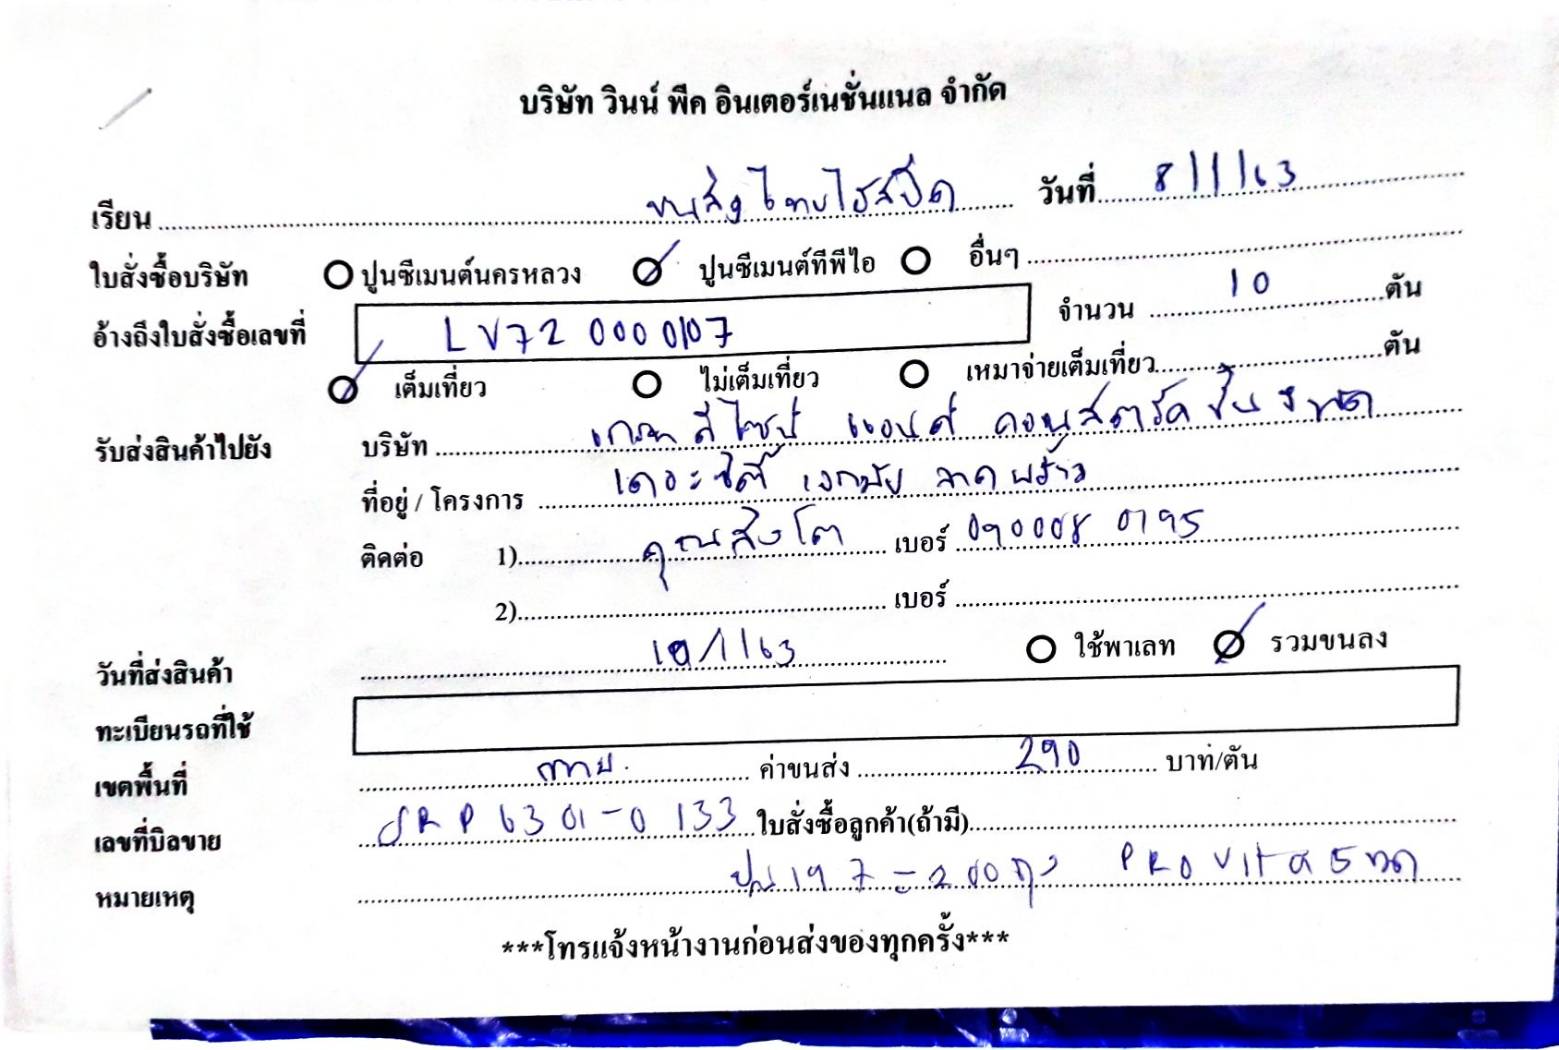 บริษัท วินน์ พีค อินเตอร์เนชั่นแนล จำกัด
เรียน ขนส่งไทยไฮสปีด วันที่ 8/1/63
ใบสั่งซื้อบริษัท ปูนซีเมนต์นครหลวง ปูนซีเมนต์ทีพีไอ อื่นๆ
อ้างถึงใบสั่งซื้อเลขที่ LV72 0000107 จำนวน 10 ตัน
เต็มเที่ยว ไม่เต็มเที่ยว เหมาจ่ายเต็มเที่ยว ตัน
รับส่งสินค้าไปยัง บริษัท ดีไซน์ แอนด์ คอนสตรัคชั่น จำกัด
ที่อยู่ / โครงการ เดอะซิตี้ เอกมัย ลาดพร้าว
ติดต่อ 1) คุณสิงโต เบอร์ 090008 0195
2) เบอร์
วันที่ส่งสินค้า 10/1/63 ใช้พาเลท รวมขนลง
ทะเบียนรถที่ใช้
เขตพื้นที่ กทม. ค่าขนส่ง 290 บาท/ตัน
เลขที่บิลขาย SRP6301-0133 ใบสั่งซื้อลูกค้า(ถ้ามี)
หมายเหตุ ปูน197=200ถุง PROVITA
***โทรแจ้งหน้างานก่อนส่งของทุกครั้ง***